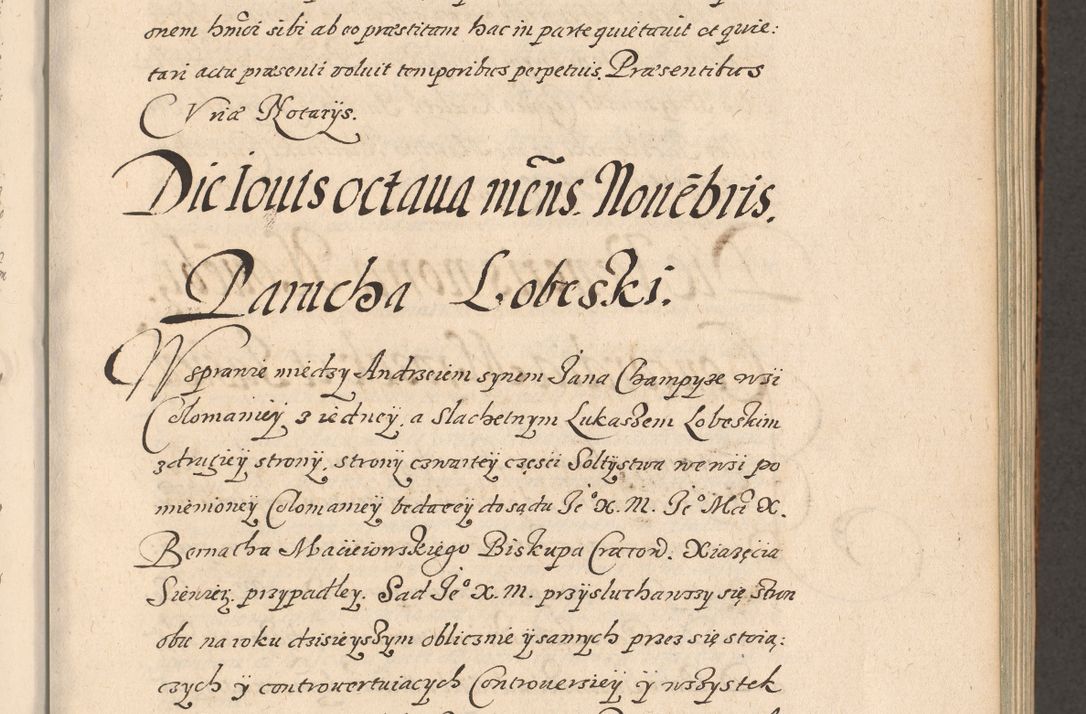 onem hmõi sibi ab eo præstitam hac in parte quietavit et quie:
tari actu præsenti voluit temporibus perpetuis, Præsentibus
Curiæ Notarÿs.
Die Iouis octaua mẽns. Nouẽbris.
Parucha Lobeski.
W sprawie miedzy Andrzeiem synem Jana Champyze wsi
Colomaniey z iedney, a Slachetnym Lukaszem Lobeskim
z drugiey strony, strony czwartey części Soltystwa we wsi po
mienioney Colomaniey bedacey do sądu Je° X. M. Je° Mći X.
Bernatha Macieiowskiego Biskupa Cracow. Xiazęcia
Siewierz. przypadley. Sad Je° X. M. przysluchawszy się stron
obu na roku dzisieyszym oblicznie ÿ samych przez się stoią:
czych ÿ controwertuiacych Controuersiey ÿ wszystek